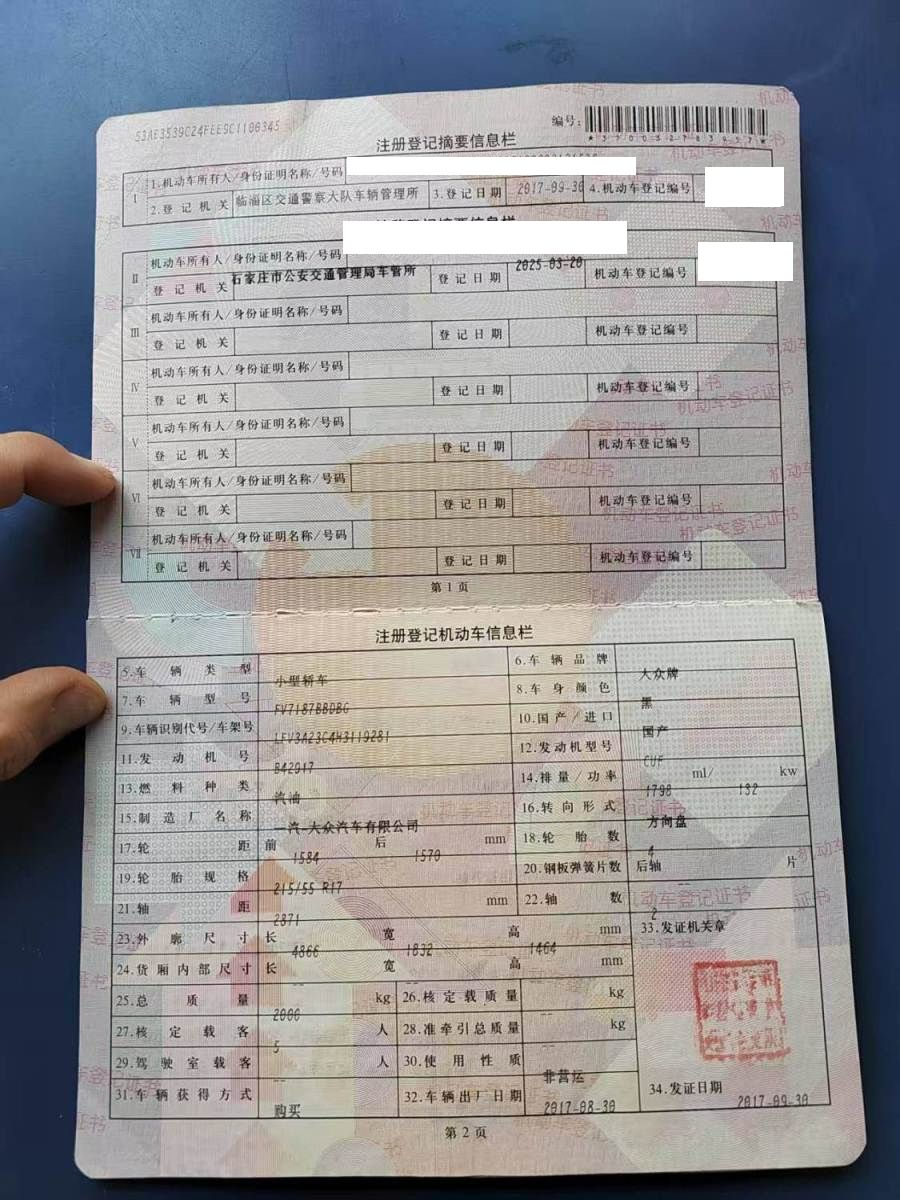 编号:
注册登记摘要信息栏
I
1.机动车所有人/身份证明名称/号码
2.登记机关 临淄区交通警察大队车辆管理所 3.登记日期 2017-09-30 4.机动车登记编号
II
机动车所有人/身份证明名称/号码
登记机关 石家庄市公安交通管理局车管所 登记日期 2025-03-20 机动车登记编号
III
机动车所有人/身份证明名称/号码
登记机关 登记日期 机动车登记编号
IV
机动车所有人/身份证明名称/号码
登记机关 登记日期 机动车登记编号
V
机动车所有人/身份证明名称/号码
登记机关 登记日期 机动车登记编号
VI
机动车所有人/身份证明名称/号码
登记机关 登记日期 机动车登记编号
VII
机动车所有人/身份证明名称/号码
登记机关 登记日期 机动车登记编号
第1页
注册登记机动车信息栏
5.车辆类型 小型轿车 6.车辆品牌 大众牌
7.车辆型号 FV7187BBDBG 8.车身颜色 黑
9.车辆识别代号/车架号 LFV3A23C4H3119281 10.国产/进口 国产
11.发动机号 B42017 12.发动机型号 CUF
13.燃料种类 汽油 14.排量/功率 1798 ml/ 132 kw
15.制造厂名称 一汽-大众汽车有限公司 16.转向形式 方向盘
17.轮距 前 1584 后 1570 mm 18.轮胎数 4
19.轮胎规格 215/55 R17 20.钢板弹簧片数 后轴 -- 片
21.轴距 2871 mm 22.轴数 2
23.外廓尺寸 长 4866 宽 1832 高 1464 mm 33.发证机关章
24.货厢内部尺寸 长 -- 宽 -- 高 -- mm
25.总质量 2000 kg 26.核定载质量 -- kg
27.核定载客 5 人 28.准牵引总质量 -- kg
29.驾驶室载客 -- 人 30.使用性质 非营运
31.车辆获得方式 购买 32.车辆出厂日期 2017-08-30 34.发证日期 2017-09-30
第2页